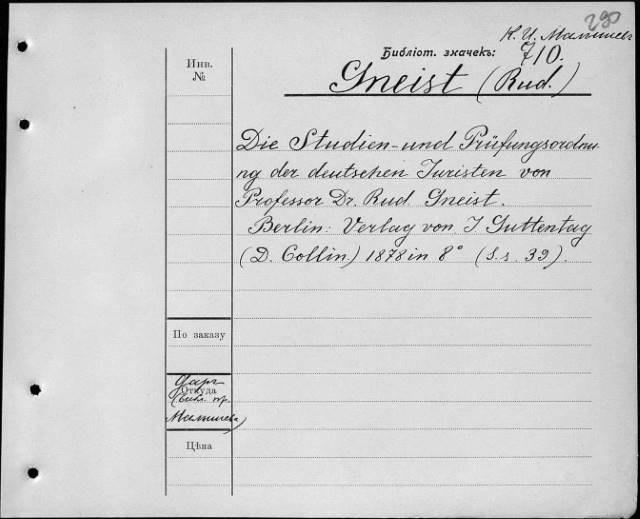 290
К. И. Малышевъ
Библіот. значекъ: 710.
Gneist (Rud.)
Инв.
№
Die Studien- und Prüfungsordnu
ng der deutschen Juristen von
Professor Dr. Rud. Gneist.
Berlin: Verlag von J Guttentag
(D. Collin.) 1878 in 8° (S.s. 39).
По заказу
Даръ
Откуда
(библ. пр.
Малышева)
Цѣна